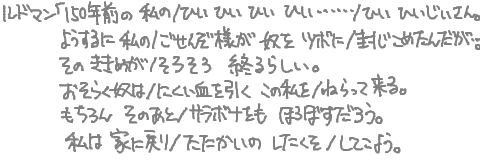 ルドマン「150年前の 私の/ひい ひい ひい ひい……/ひい ひいじいさん。
ようするに 私の/ごせんぞ様が 奴を ツボに/封じこめたんだが…。
その ききめが/そろそろ 終るらしい。
おそらく奴は/にくい血を引く この私を/ねらって来る。
もちろん そのあと/サラボナをも ほろぼすだろう。
私は 家に戻り/たたかいの したくを/してこよう。